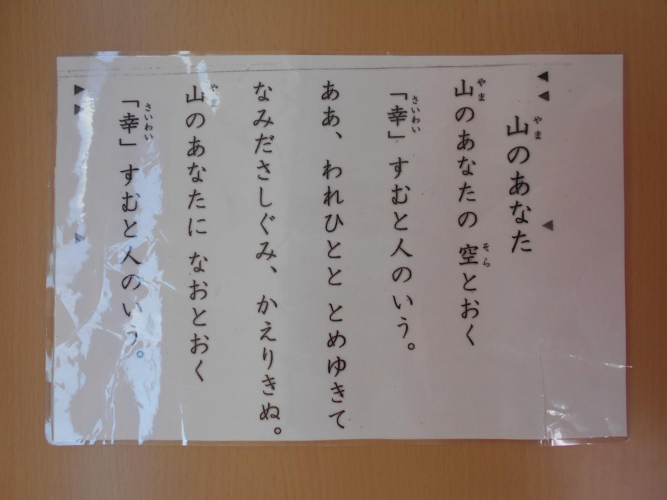 山のあなた
山のあなたの 空とおく
「幸」すむと人のいう。
ああ、われひとと とめゆきて
なみださしぐみ、かえりきぬ。
山のあなたに なおとおく
「幸」すむと人のいう。